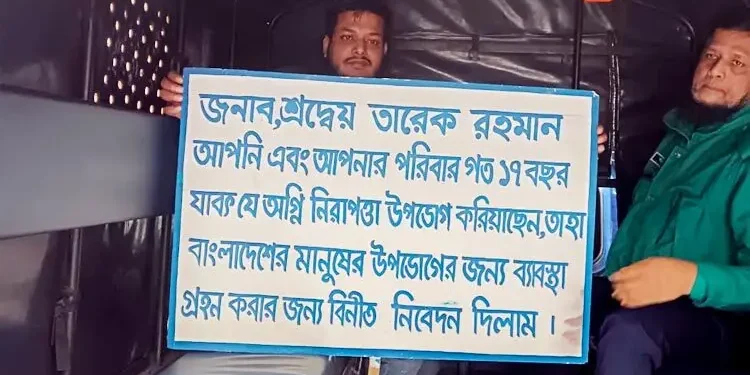 জনাব,শ্রদ্বেয় তারেক রহমান
আপনি এবং আপনার পরিবার গত ১৭ বছর
যাবৎ যে অগ্নি নিরাপত্তা উপভোগ করিয়াছেন,তাহা
বাংলাদেশের মানুষের উপভোগের জন্য ব্যাবস্থা
গ্রহন করার জন্য বিনীত নিবেদন দিলাম ।